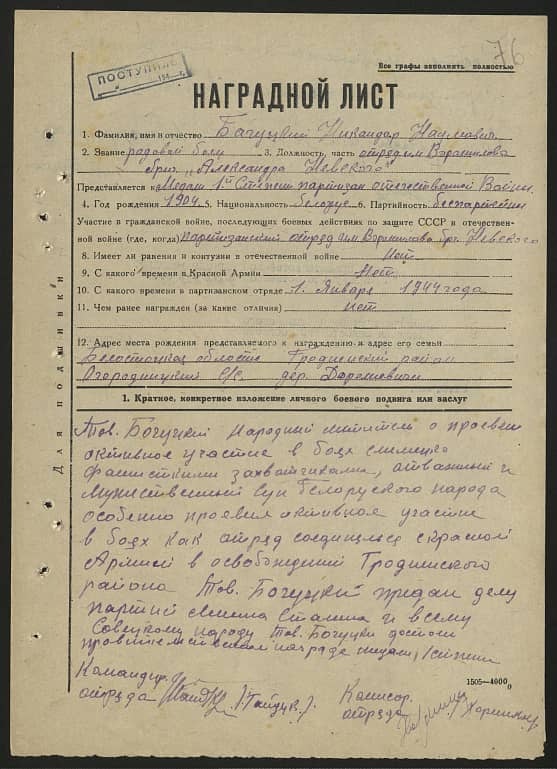 76
Все графы заполнить полностью
ПОСТУПИЛО
НАГРАДНОЙ ЛИСТ
1. Фамилия, имя и отчество Багуцкий Никандар Наумавич
2. Звание радовой боец 3. Должность, часть отред им Варашилова
бриг. „Александра Невского"
Представляется к Медали 1ой Степени партизан отечественной Войны
4. Год рождения 1904 5. Национальность белорус 6. Партийность беспартейны
Участие в гражданской войне, последующих боевых действиях по защите СССР и отечествен-
ной войне (где, когда) партизанский отряд им. Варашилова бр. Невского
8. Имеет ли ранения и контузии в отечественной войне Нет
9. С какого времени в Красной Армии Нет
10. С какого времени в партизанском отряде 1. Января 1944 года
11. Чем ранее награжден (за какие отличия) Нет
12. Адрес места рождения представляемого к награждению и адрес его семьи
Белосточная область Гродненский район
Огородницкий С/С дер.
Для подшивки
1. Краткое, конкретное изложение личного боевого подвига или заслуг
Тов. Богуцкий Народный мститель о проевел
активное участие в боях снимецко
фашисткими захватчиками, отважный и
Мужиственный Сун Белоруского народа
особенно проевил активное участие
в боях как отряд соединился скрасной
Армией в освобождений Гродинского
района Тов. Богуцкий предан делу
партий Ленина Сталина и всему
Советскому народу Тов. Богуцки достоен
провительственай награде медали, 1 степени
Командир
отреда
Комисар
отреда
1505—4000